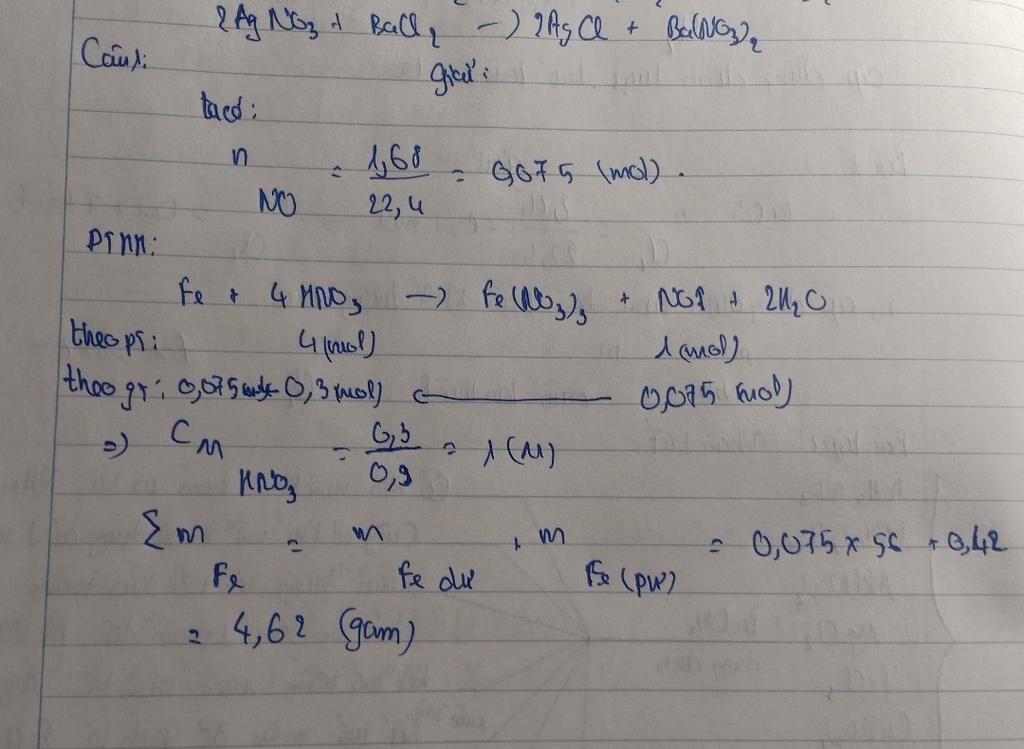 2AgNO₃ + BaCl₂ → 2AgCl + Ba(NO₃)₂
Câu1:
giải:
ta có:
n NO = 1,68 / 22,4 = 0,075 (mol).
PTPỨ:
Fe + 4HNO₃ → Fe(NO₃)₃ + NO↑ + 2H₂O
theo pt: 4(mol) 1(mol)
theo gt: 0,075 0,3(mol) ← 0,075 (mol)
⇒ C M HNO₃ = 0,3 / 0,3 = 1(M)
Σ m Fe = m Fe dư + m Fe (pứ) = 0,075 × 56 + 0,42
= 4,62 (gam)